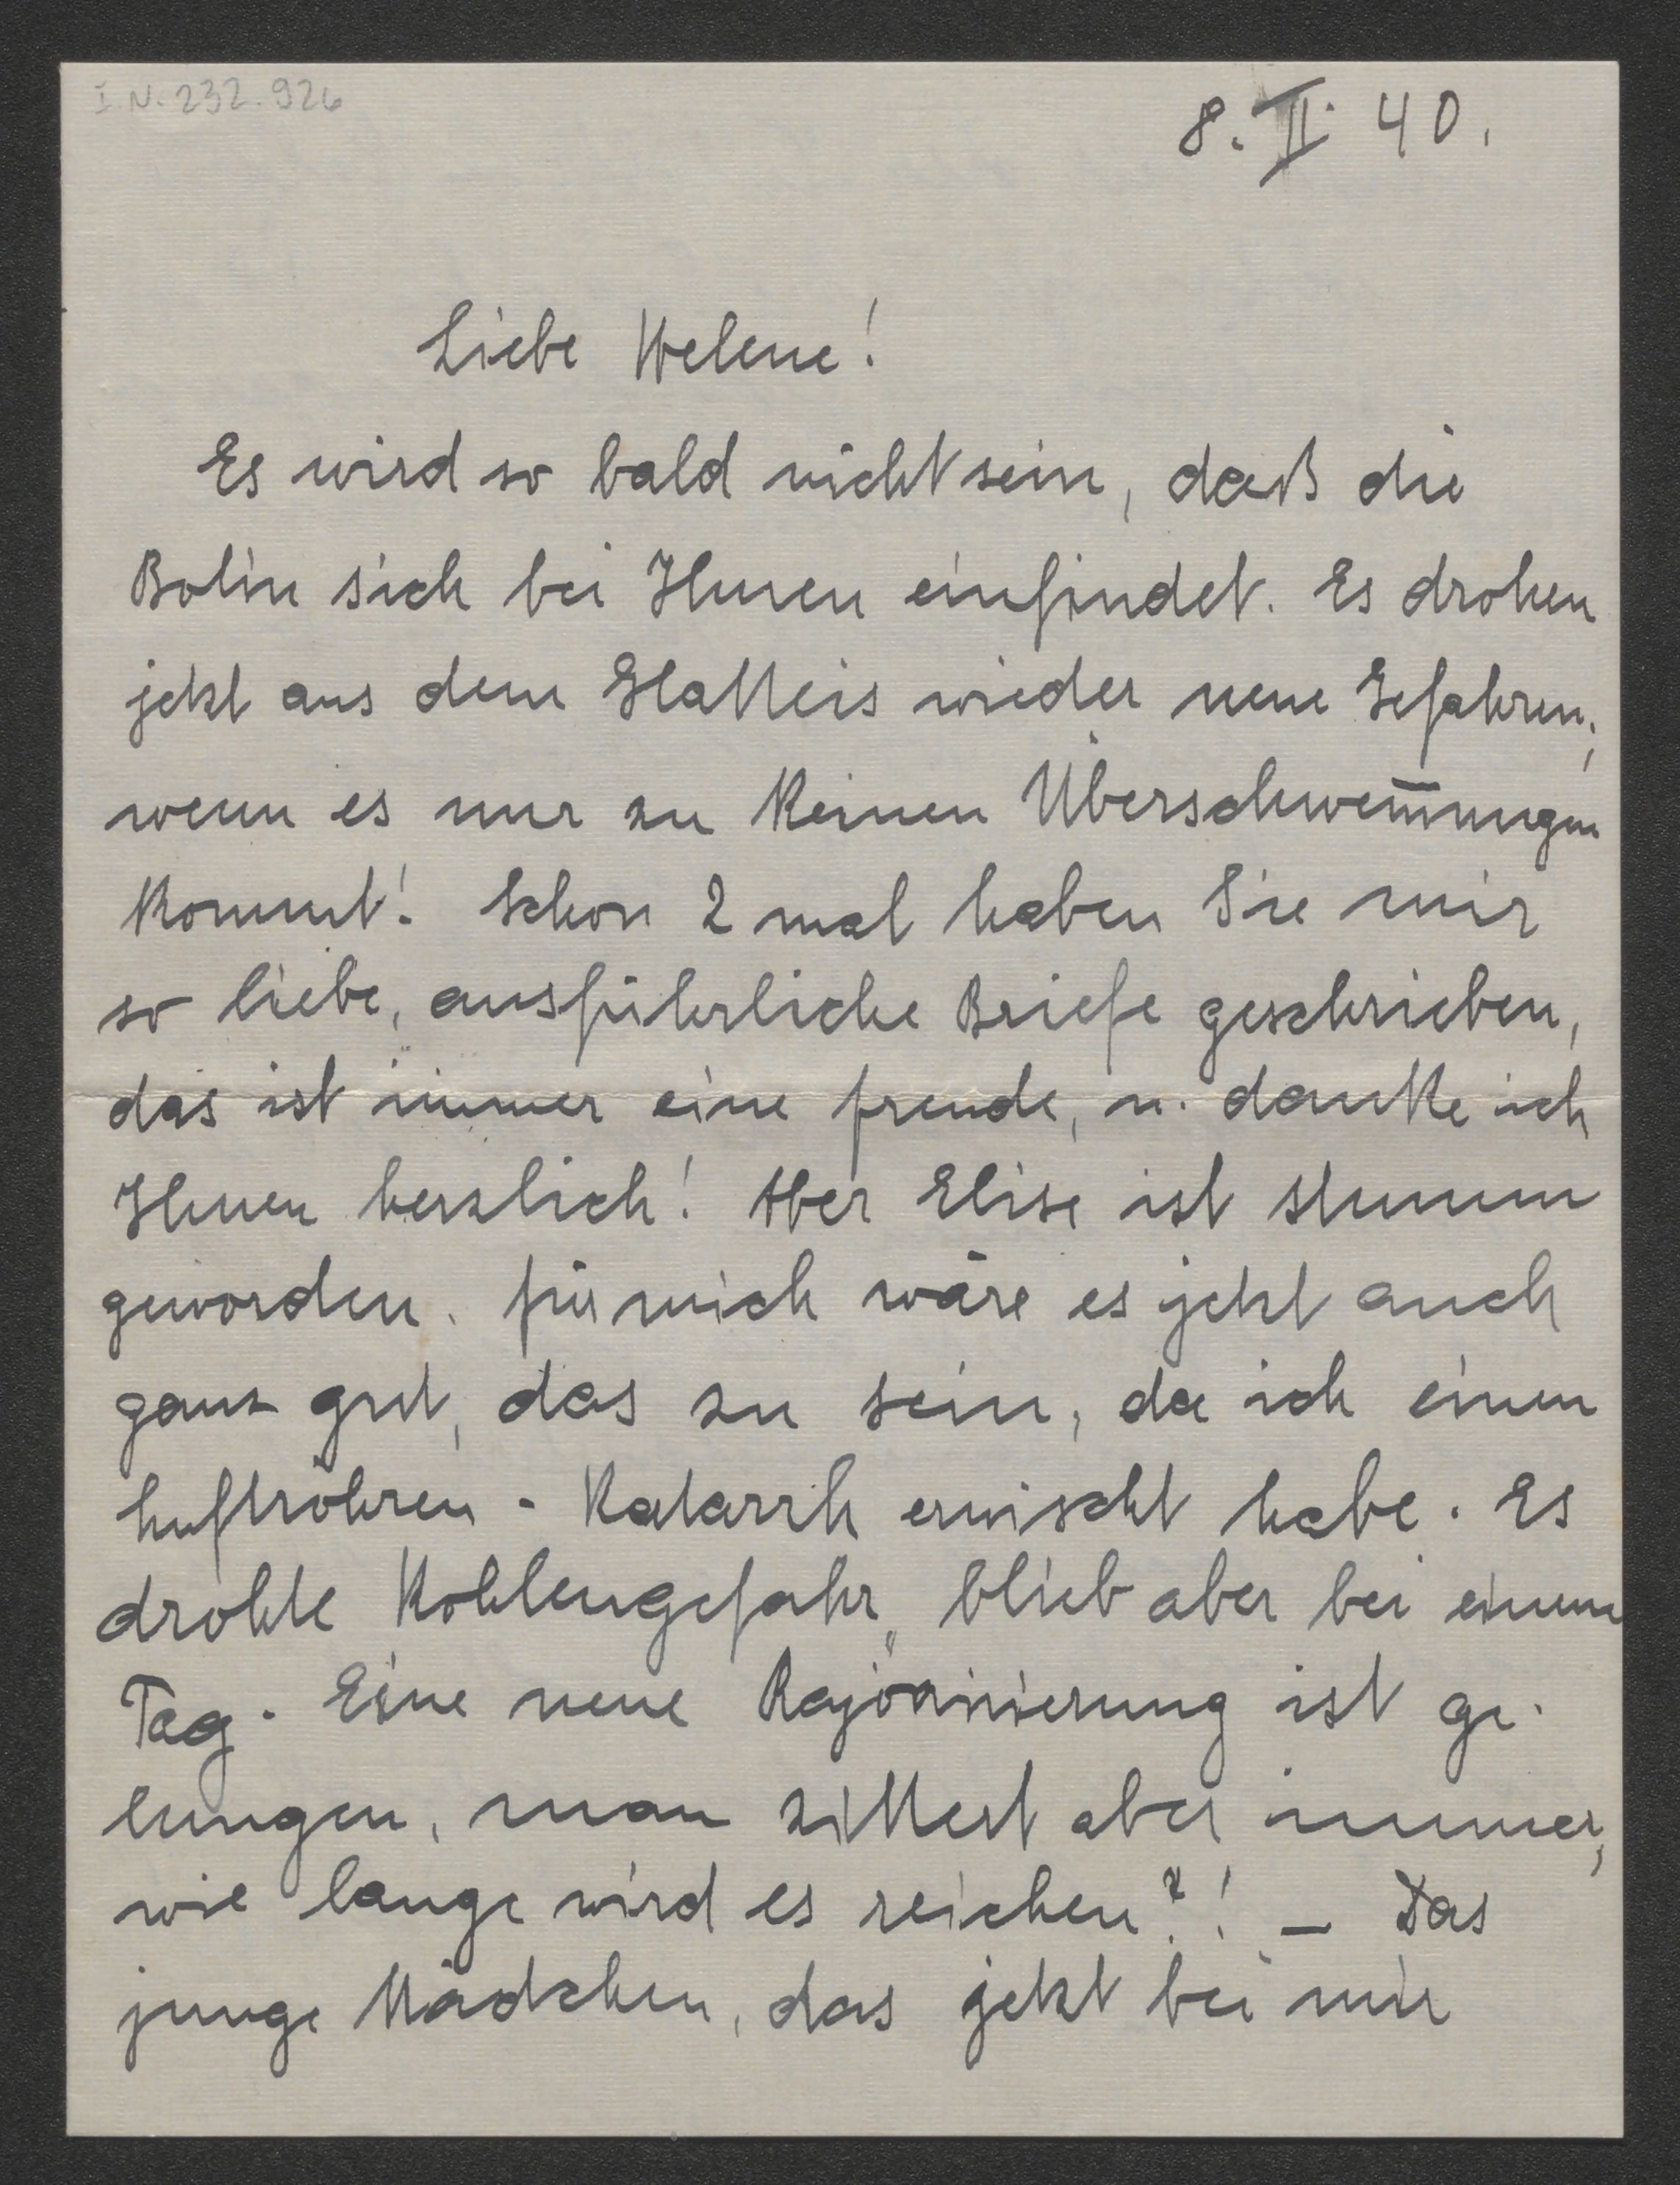 I.N. 232.926
8. II. 40.
Liebe Helene!
Es wird so bald nicht sein, daß die
Bolin sich bei Ihnen einfindet. Es drohen
jetzt aus dem Glatteis wieder neue Gefahren;
wenn es nur zu keinen Überschwem̅ungen
kommt! Schon 2 mal haben Sie mir
so liebe, ausführliche Briefe geschrieben,
das ist immer eine Freude, u. danke ich
Ihnen herzlich! Aber Elise ist stumm
geworden. Für mich wäre es jetzt auch
ganz gut, das zu sein, da ich einen
Luftröhren-Katarrh erwischt habe. Es
drohte Kohlengefahr, blieb aber bei einem
Tag. Eine neue Rajonierung ist ge-
lungen, man zittert aber immer,
wie lange wird es reichen?! – Das
junge Mädchen, das jetzt bei mir